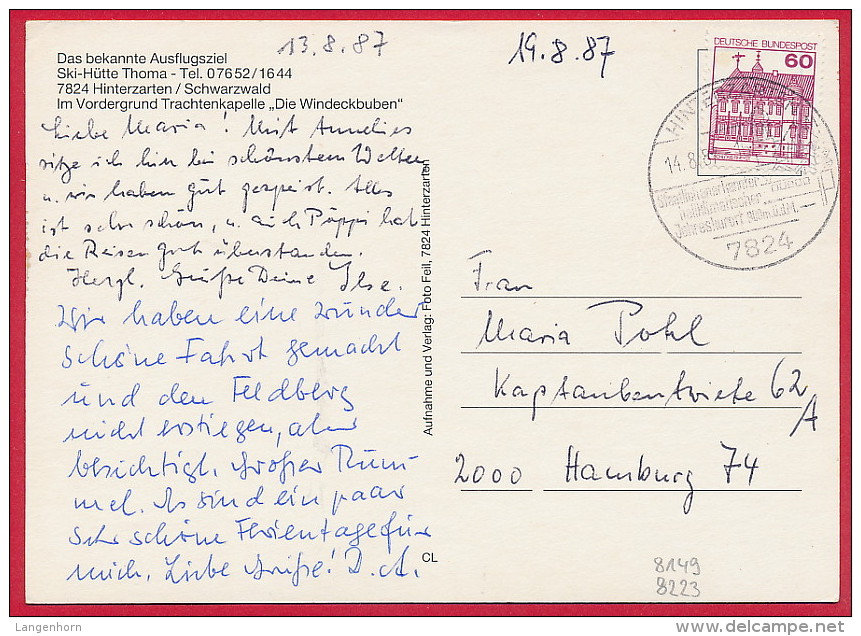 13.8.87
19.8.87
DEUTSCHE BUNDESPOST
60
Das bekannte Ausflugsziel
Ski-Hütte Thoma - Tel. 07652/1644
7824 Hinterzarten / Schwarzwald
Im Vordergrund Trachtenkapelle „Die Windeckbuben"
Liebe Maria! Mit Annelies
sitze ich hier bei schönstem Wetter
u. wir haben gut gespeist. Alles
ist sehr schön, u. auch Püppi hat
die Reisen gut überstanden.
Herzl. Grüße Deine Ilse.
Wir haben eine wunder
schöne Fahrt gemacht
und den Feldberg
nicht erstiegen, aber
besichtigt. Großer Rum-
mel. Es sind ein paar
sehr schöne Ferientage für
mich. Liebe Grüße! D. A.
Aufnahme und Verlag: Foto Feil, 7824 Hinterzarten
CL
14.8.87
7824
Frau
Maria Pohl
Kaptaubentwiete 62
A
2000 Hamburg 74
8149
8223
Langenhorn
delcampe.net